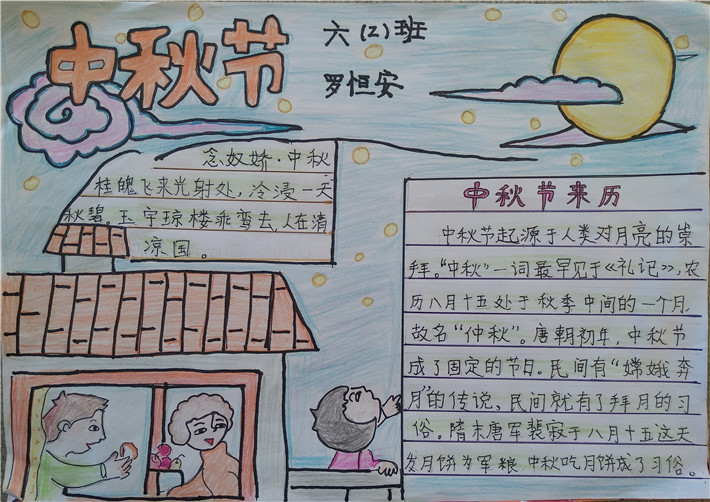 中秋节
六(2)班
罗恒安
念奴娇·中秋
桂魄飞来光射处,冷浸一天
秋碧。玉宇琼楼乖鸾去,人在清
凉国。
中秋节来历
中秋节起源于人类对月亮的崇
拜。“中秋”一词最早见于《礼记》,农
历八月十五处于秋季中间的一个月,
故名“仲秋”。唐朝初年,中秋节
成了固定的节日。民间有“嫦娥奔
月”的传说、民间就有了拜月的习
俗。隋末唐军裴寂于八月十五这天
发月饼为军粮 中秋吃月饼成了习俗。